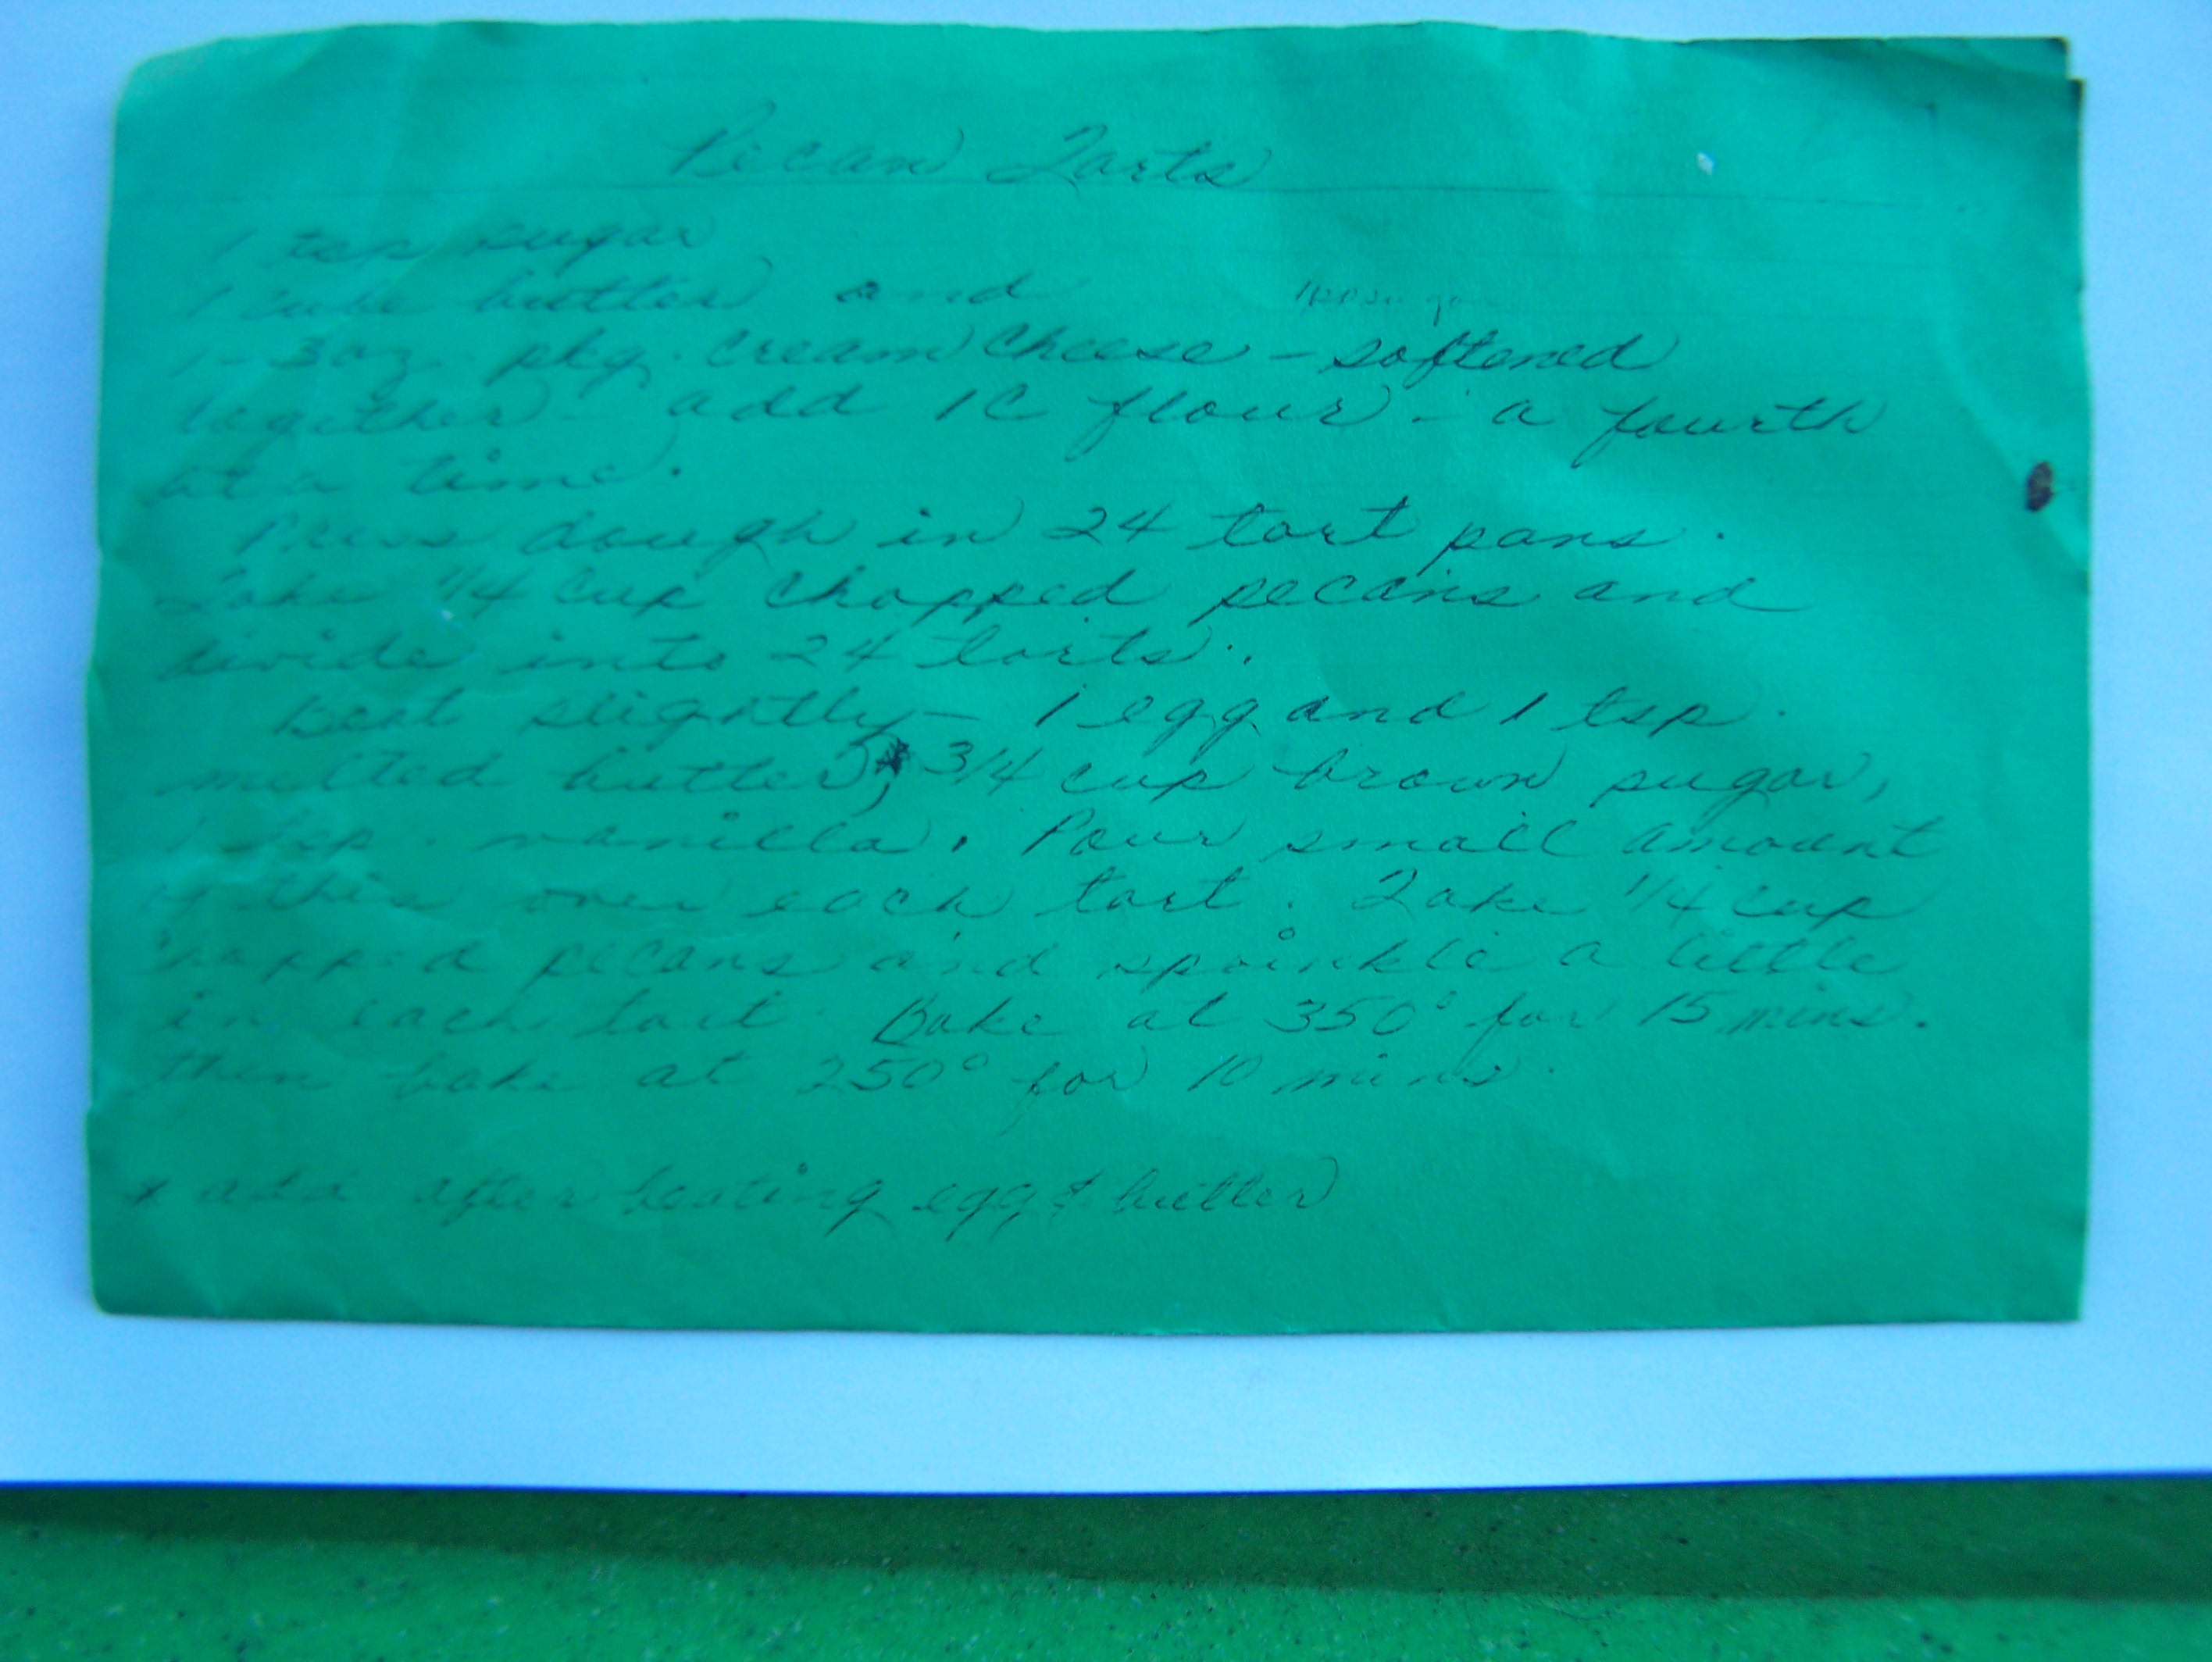 Pecan Tarts
1 tsp sugar
1 cube butter and
1 - 3 oz. pkg. cream cheese - softened
together - add 1 C flour - a fourth
at a time.
Press dough in 24 tart pans.
Take 1/4 cup chopped pecans and
divide into 24 tarts.
Beat slightly - 1 egg and 1 tsp.
melted butter, * 3/4 cup brown sugar,
1 tsp. vanilla. Pour small amount
of this over each tart. Take 1/4 cup
chopped pecans and sprinkle a little
in each tart. Bake at 350° for 15 mins.
then bake at 250° for 10 mins.
* add after beating egg & butter